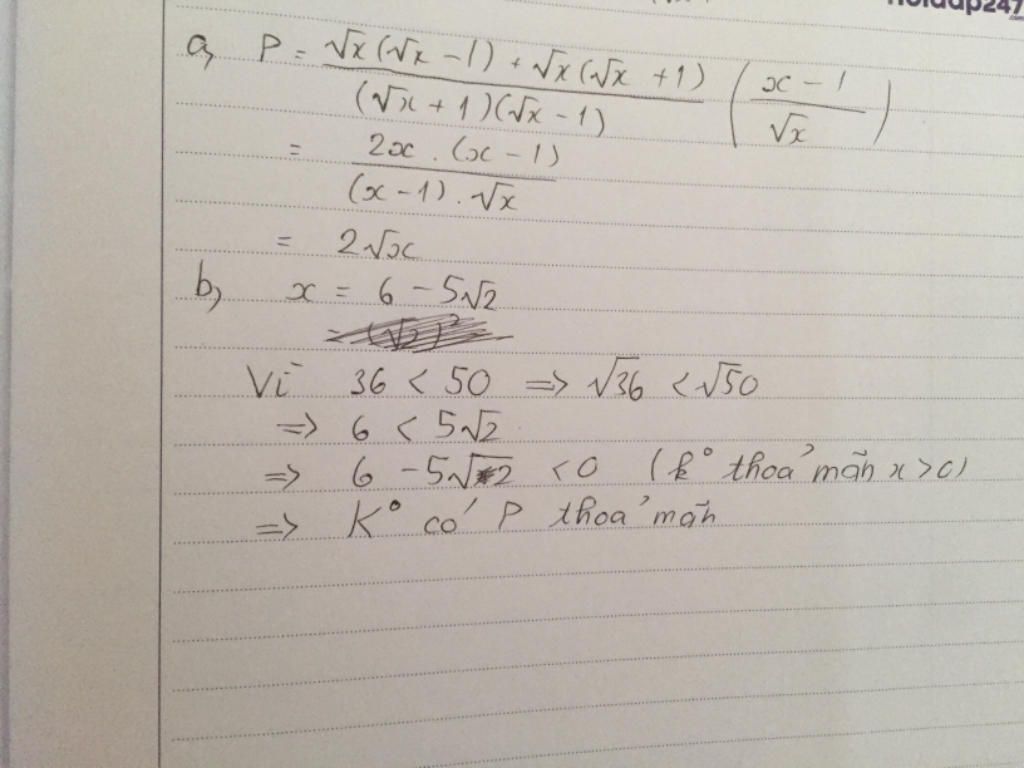 hoidap247
.com
a, P = √x(√x - 1) + √x(√x + 1) / (√x + 1)(√x - 1) (x - 1 / √x)
= 2x . (x - 1) / (x - 1) . √x
= 2√x
b, x = 6 - 5√2
Vì 36 < 50 => √36 < √50
=> 6 < 5√2
=> 6 - 5√2 < 0 (k° thoả mãn x > 0)
=> K° có P thoả mãn